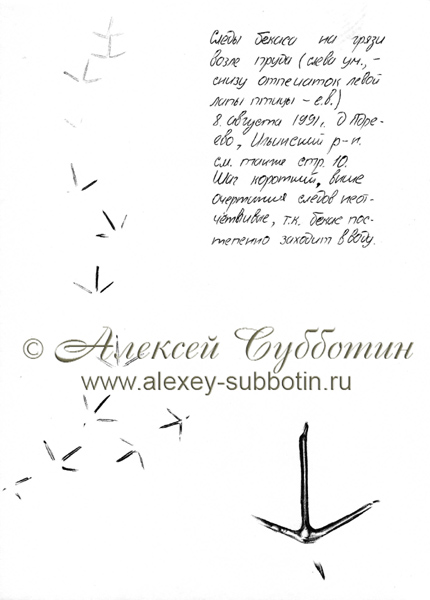 Следы бекаса на грязи
возле пруда (слева ум., -
снизу отпечаток левой
лапы птицы - е.в.)
8 августа 1991г. Д
ево, Ильинский р-н.
см. также стр. 10.
Шаг короткий, выше
очертания следов неот-
чётливые, т.к. бекас пос-
тепенно заходит в воду.
© Алексей Субботин
www.alexey-subbotin.ru